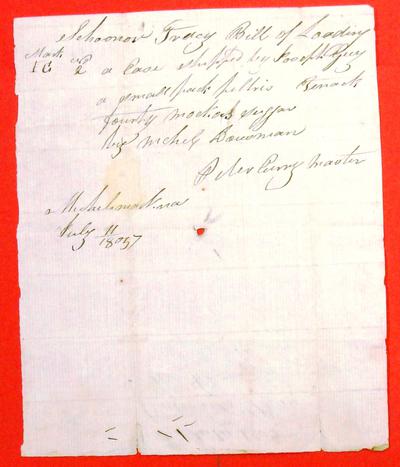 Schooner Tracy Bill of Loading
Mark
IG No 2 a Case shipped by Joseph Guy
a small pack peltris
fourty mockocks suggar
by michey Dousman
Peter Curry master
Michelmackina
July 11 1805